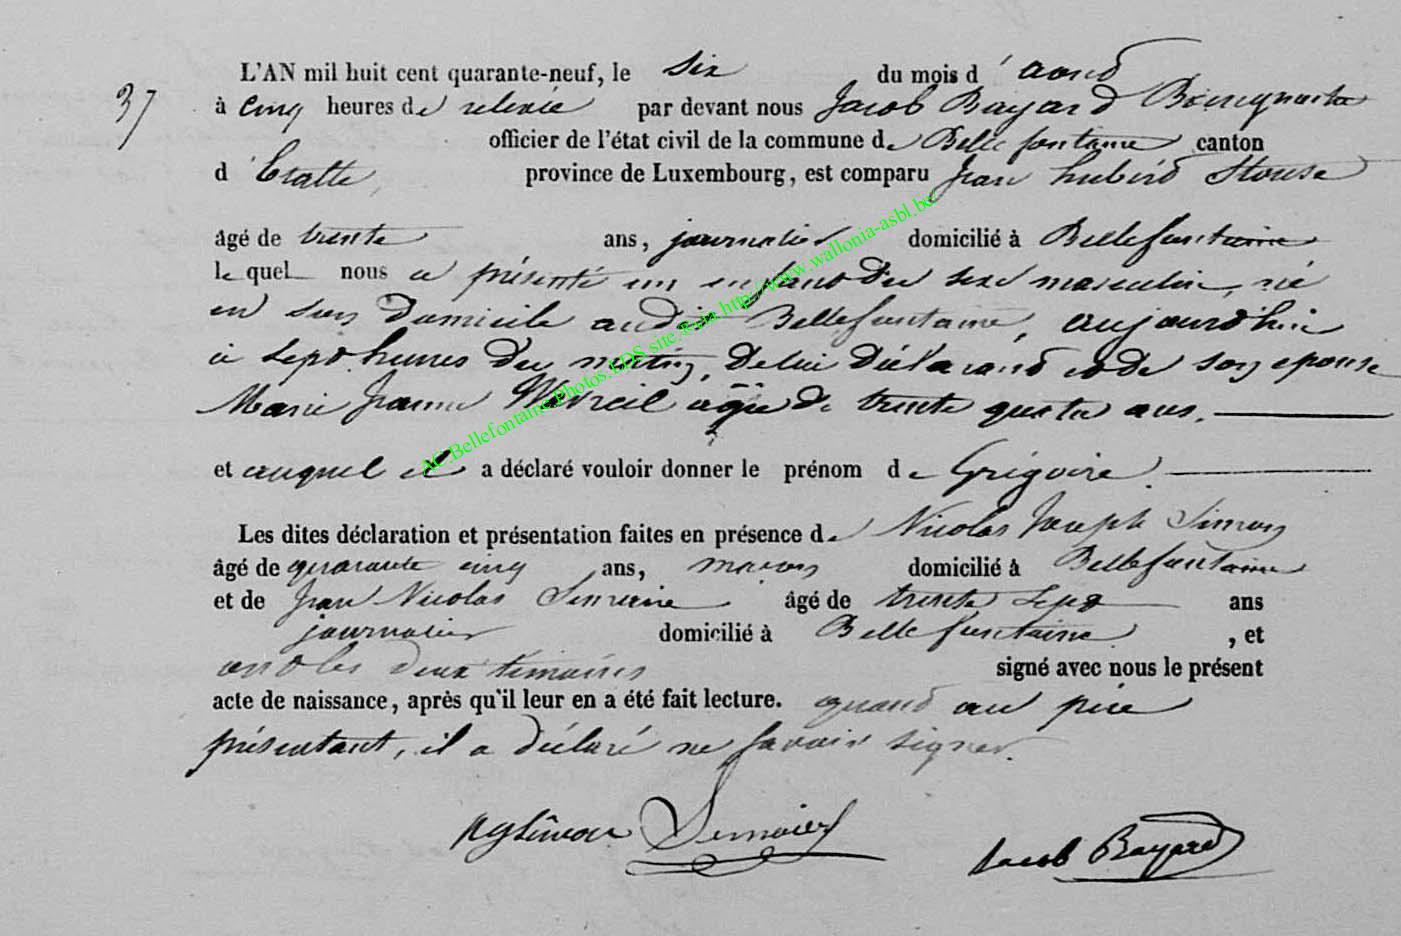 37
L'AN mil huit cent quarante-neuf, le six du mois d'aout
à cinq heures de relevée par devant nous Jacob Bayard Bourgmestre
officier de l'état civil de la commune de Bellefontaine canton
d'Etalle, province de Luxembourg, est comparu Jean hubert
âgé de trente ans, journalier domicilié à Bellefontaine
lequel nous a présenté un enfant du sexe masculin, né
en son domicile audit Bellefontaine, aujourd'hui
à sept heures du matin, de lui déclarant et de son épouse
Marie Jeanne agée de trente quatre ans.
et auquel il a déclaré vouloir donner le prénom de Grégoire.
Les dites déclaration et présentation faites en présence de Nicolas Joseph Simon
âgé de quarante cinq ans, maçon domicilié à Bellefontaine
et de Jean Nicolas âgé de trente sept ans
journalier domicilié à Bellefontaine, et
ont les deux témoins signé avec nous le présent
acte de naissance, après qu'il leur en a été fait lecture. quand au père
présentant, il a déclaré ne savoir signer.
Jacob Bayard
AC.Bellefontaine.Photos.LDS sur Asbl http://www.wallonia-asbl.be/